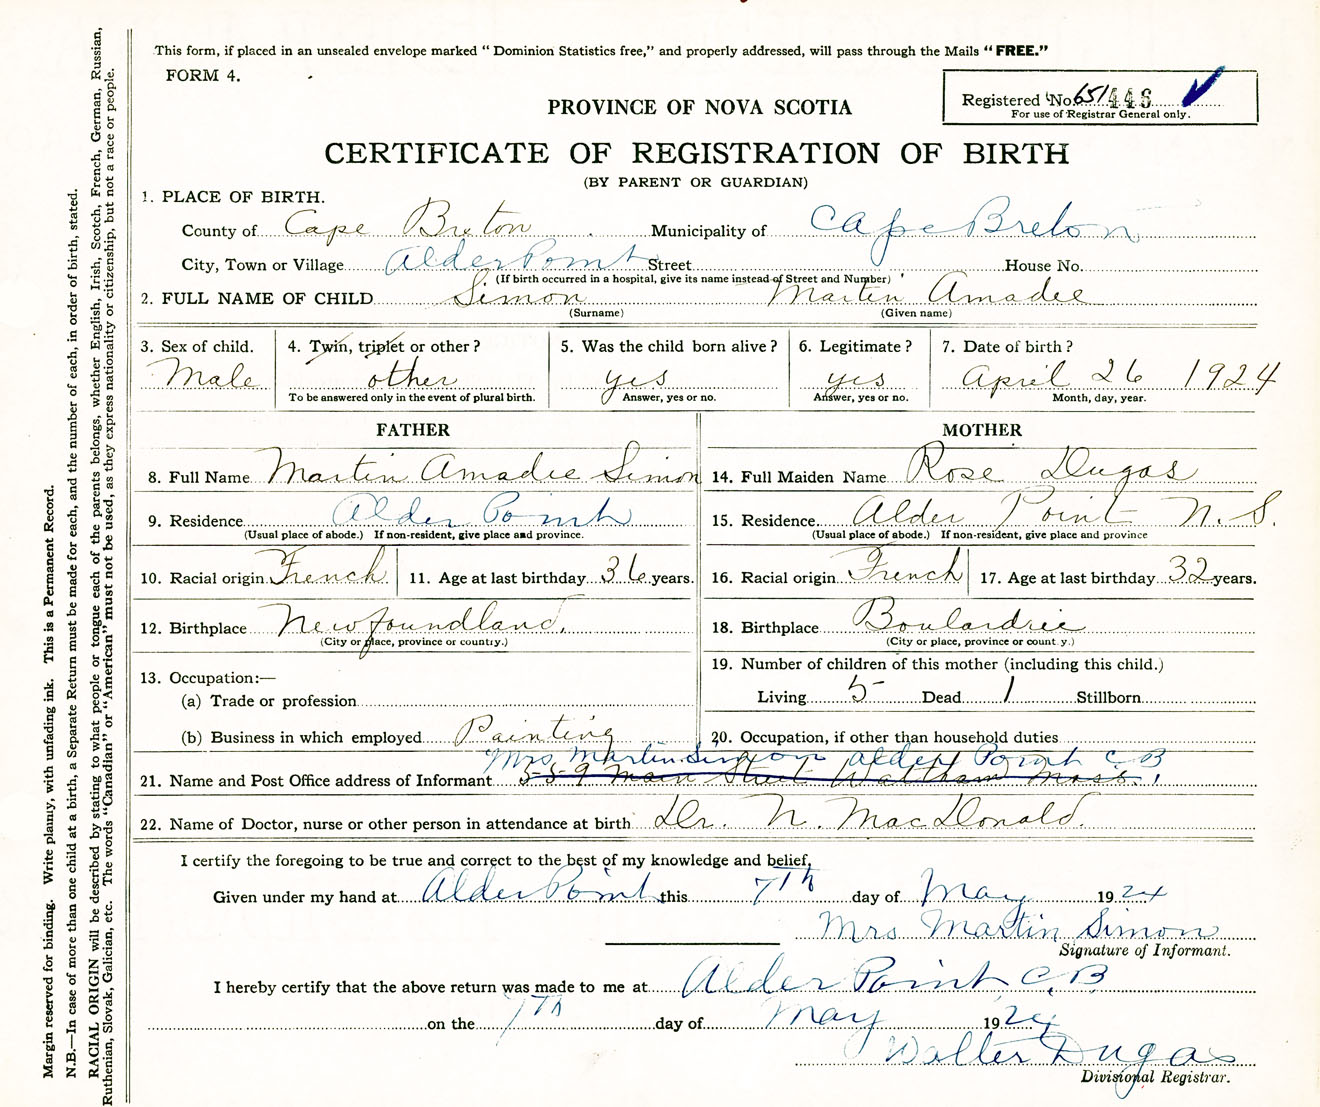 This form, if placed in an unsealed envelope marked "Dominion Statistics free," and properly addressed, will pass through the Mails "FREE."
FORM 4.
Registered No. 651446
For use of Registrar General only.
PROVINCE OF NOVA SCOTIA
CERTIFICATE OF REGISTRATION OF BIRTH
(BY PARENT OR GUARDIAN)
1. PLACE OF BIRTH.
County of Cape Breton Municipality of Cape Breton
City, Town or Village Alder Point Street House No.
(If birth occurred in a hospital, give its name instead of Street and Number)
2. FULL NAME OF CHILD Simon Martin Amadee
(Surname) (Given name)
3. Sex of child. 4. Twin, triplet or other? 5. Was the child born alive? 6. Legitimate? 7. Date of birth?
Male other yes yes April 26 1924
To be answered only in the event of plural birth. Answer, yes or no. Answer, yes or no. Month, day, year.
FATHER MOTHER
8. Full Name Martin Amadee Simon 14. Full Maiden Name Rose Dugas
9. Residence Alder Point 15. Residence Alder Point N. S.
(Usual place of abode.) If non-resident, give place and province. (Usual place of abode.) If non-resident, give place and province
10. Racial origin French 11. Age at last birthday 36 years. 16. Racial origin French 17. Age at last birthday 32 years.
12. Birthplace Newfoundland. 18. Birthplace Boulardrie
(City or place, province or country.) (City or place, province or county.)
19. Number of children of this mother (including this child.)
13. Occupation:—
(a) Trade or profession Living 5 Dead 1 Stillborn
(b) Business in which employed Painting 20. Occupation, if other than household duties
Mrs Martin Simon Alder Point C B
21. Name and Post Office address of Informant 559 Main Street Waltham Mass.
22. Name of Doctor, nurse or other person in attendance at birth Dr. N. MacDonald.
I certify the foregoing to be true and correct to the best of my knowledge and belief,
Given under my hand at Alder Point this 7th day of May 1924
Mrs Martin Simon
Signature of Informant.
I hereby certify that the above return was made to me at Alder Point C. B
on the 7th day of May 1924
Walter Dugas
Divisional Registrar.
Margin reserved for binding. Write plainly, with unfading ink. This is a Permanent Record.
N.B.—In case of more than one child at a birth, a Separate Return must be made for each, and the number of each, in order of birth, stated.
RACIAL ORIGIN will be described by stating to what people or tongue each of the parents belongs, whether English, Irish, Scotch, French, German, Russian,
Ruthenian, Slovak, Galician, etc. The words "Canadian" or "American" must not be used, as they express nationality or citizenship, but not a race or people.